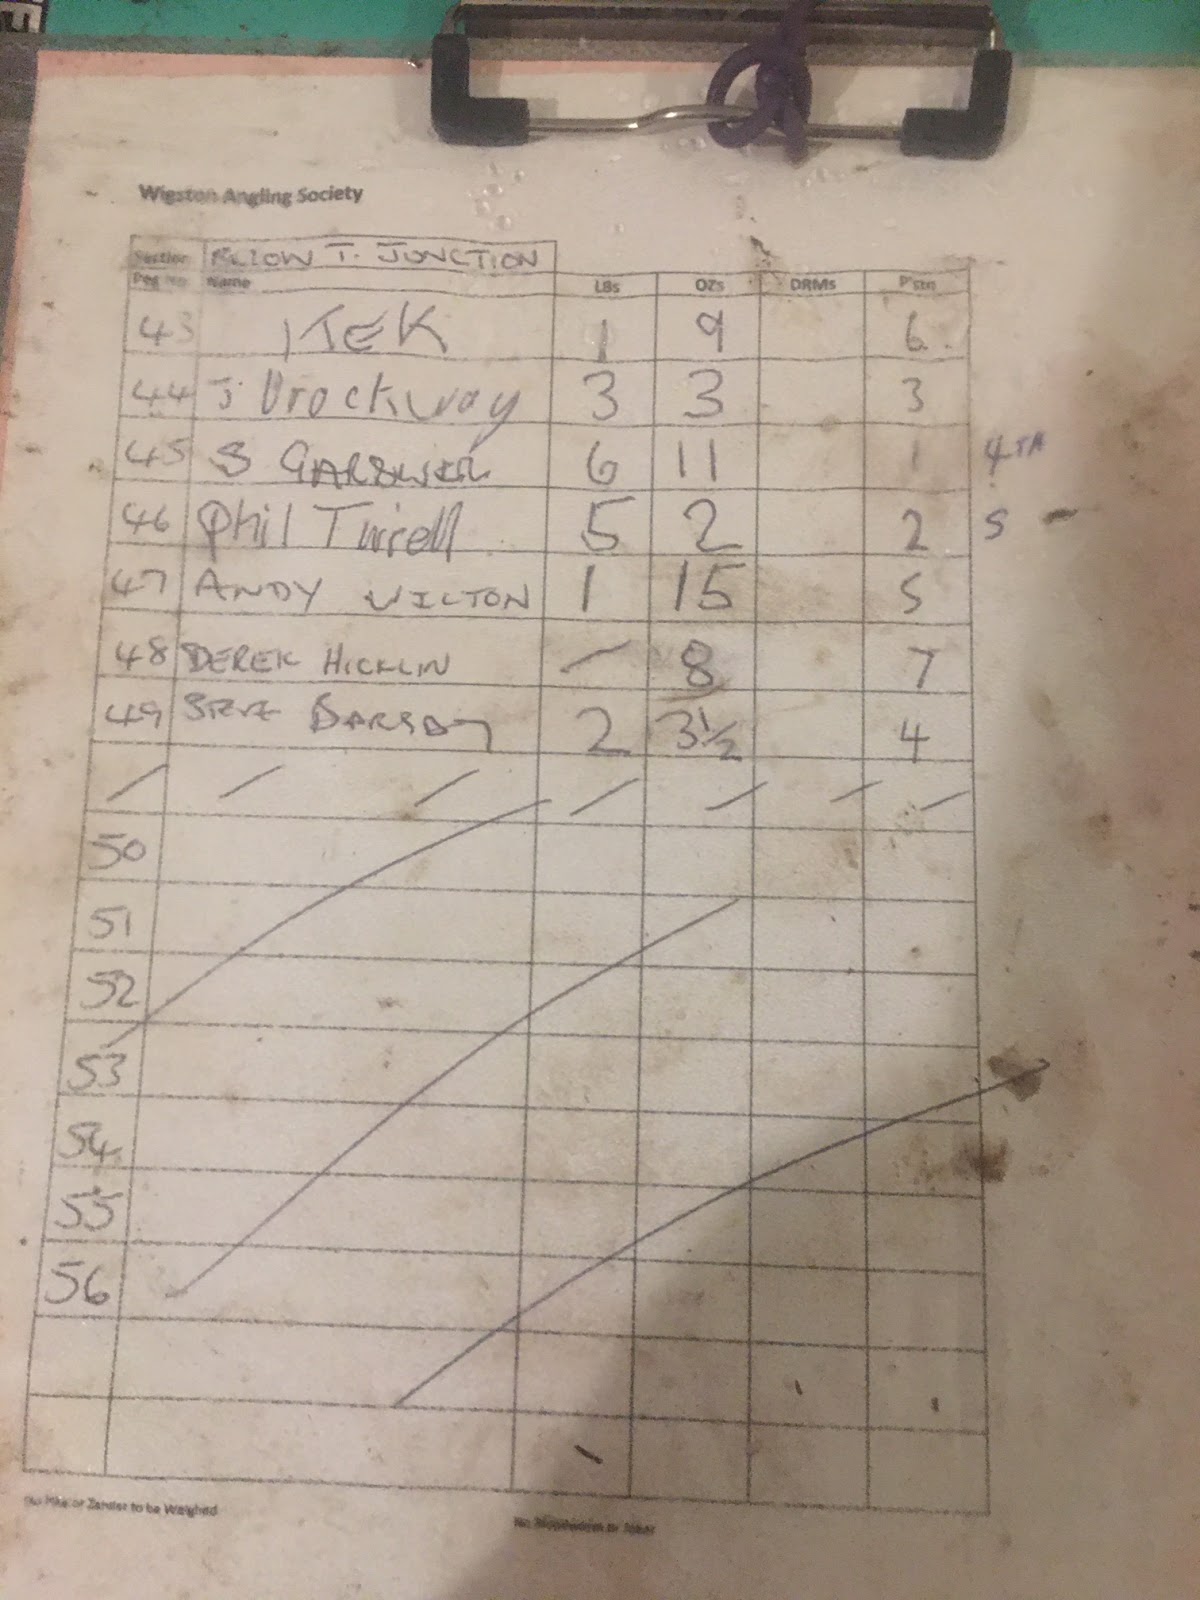 Wigston Angling Society
Section T. JUNCTION
Peg No Name LBs OZs DRMs P'stn
43 1 9 6
44 J Brockway 3 3 3
45 S 6 11 1 4TH
46 Phil Tirrell 5 2 2 5 -
47 ANDY WILTON 1 15 5
48 DEREK HICKLIN / 8 7
49 STEVE BARSBY 2 3 1/2 4
/ / / / / / /
50
51
52
53
54
55
56
No Pike or Zander to be Weighed
No Bloodworm or Joker